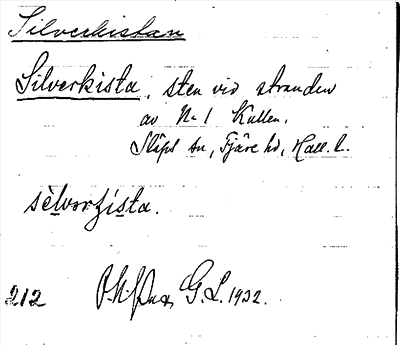 Silverkistan
Silverkista, sten vid stranden
av N:1 Kullen.
Släps sn, Fjäre hd, Hall. l.
sèlvorʃísta.
212 G. L. 1932.